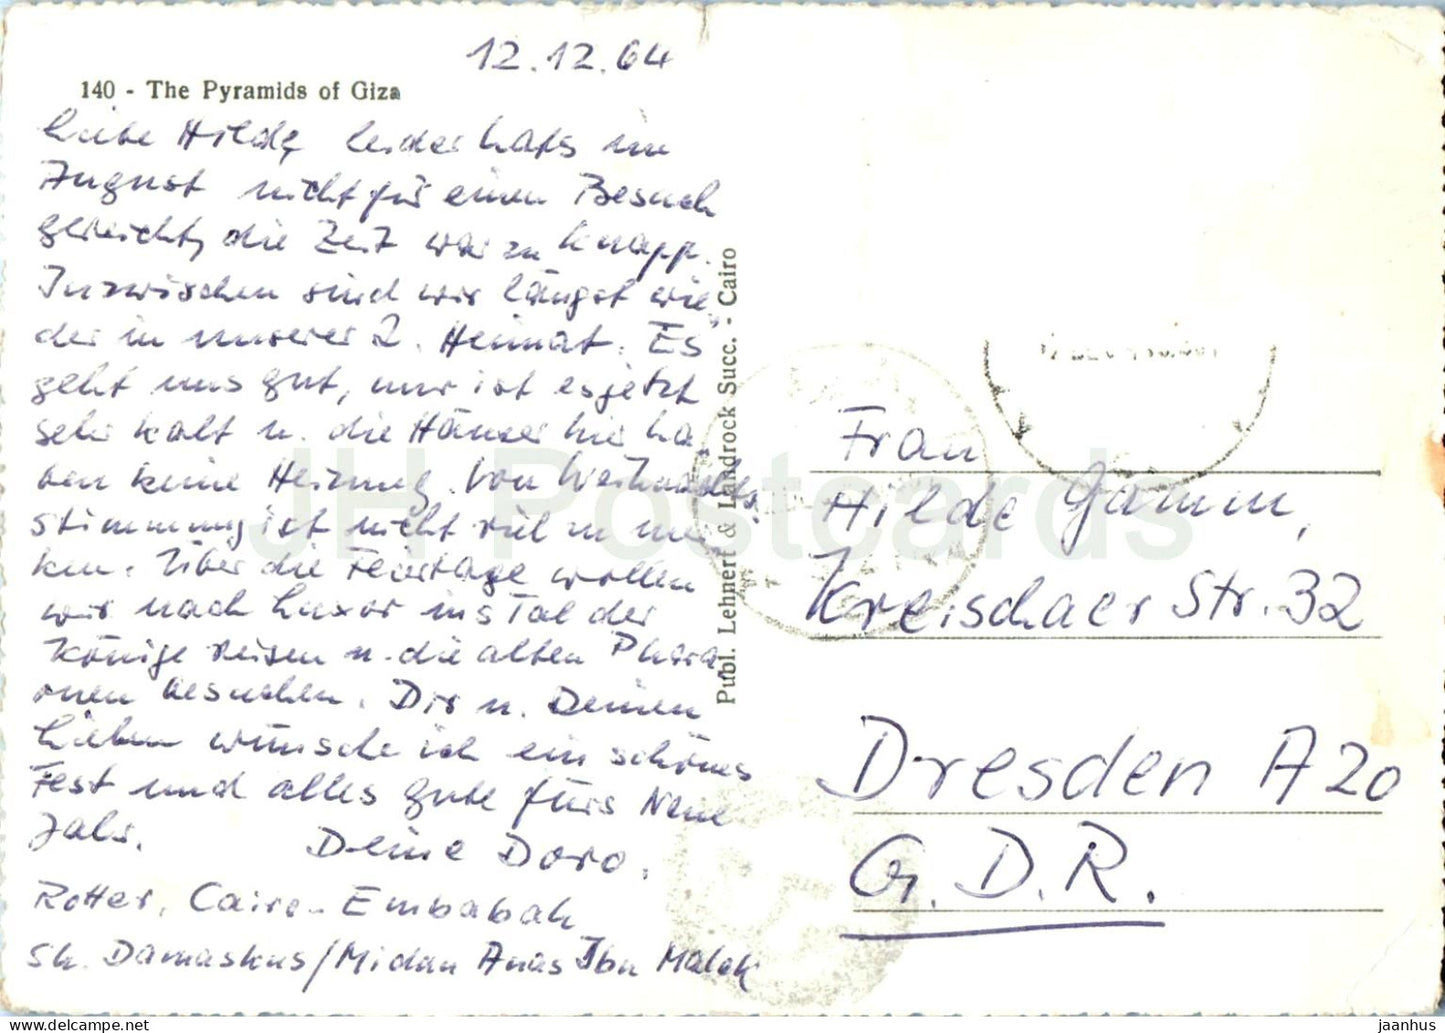 12.12.64
140 - The Pyramids of Giza
Liebe Hilde, leider hats im
August nicht für einen Besuch
gereicht, die Zeit war zu knapp.
Inzwischen sind wir längst wie-
der in unserer 2. Heimat. Es
geht uns gut, nur ist es jetzt
sehr kalt u. die Häuser hier ha-
ben keine Heizung. Von Weihnachts
stimmung ist nicht viel zu mer-
ken. Über die Feiertage wollen
wir nach Luxor ins Tal der
Könige reisen u. die alten Phara-
onen besuchen. Dir u. Deinen
Lieben wünsche ich ein schönes
Fest und alles gute fürs Neue
Jahr. Deine Doro.
Rotter, Cairo-Embabah
Sh. Damaskus/Midan Anas Ibn Malek
Publ. Lehnert & Landrock Succ. - Cairo
Frau
Hilde Gamm,
Kreischaer Str. 32
Dresden A 20
G.D.R.
JH Postcards
jaanhus
https://jhpostcards.com